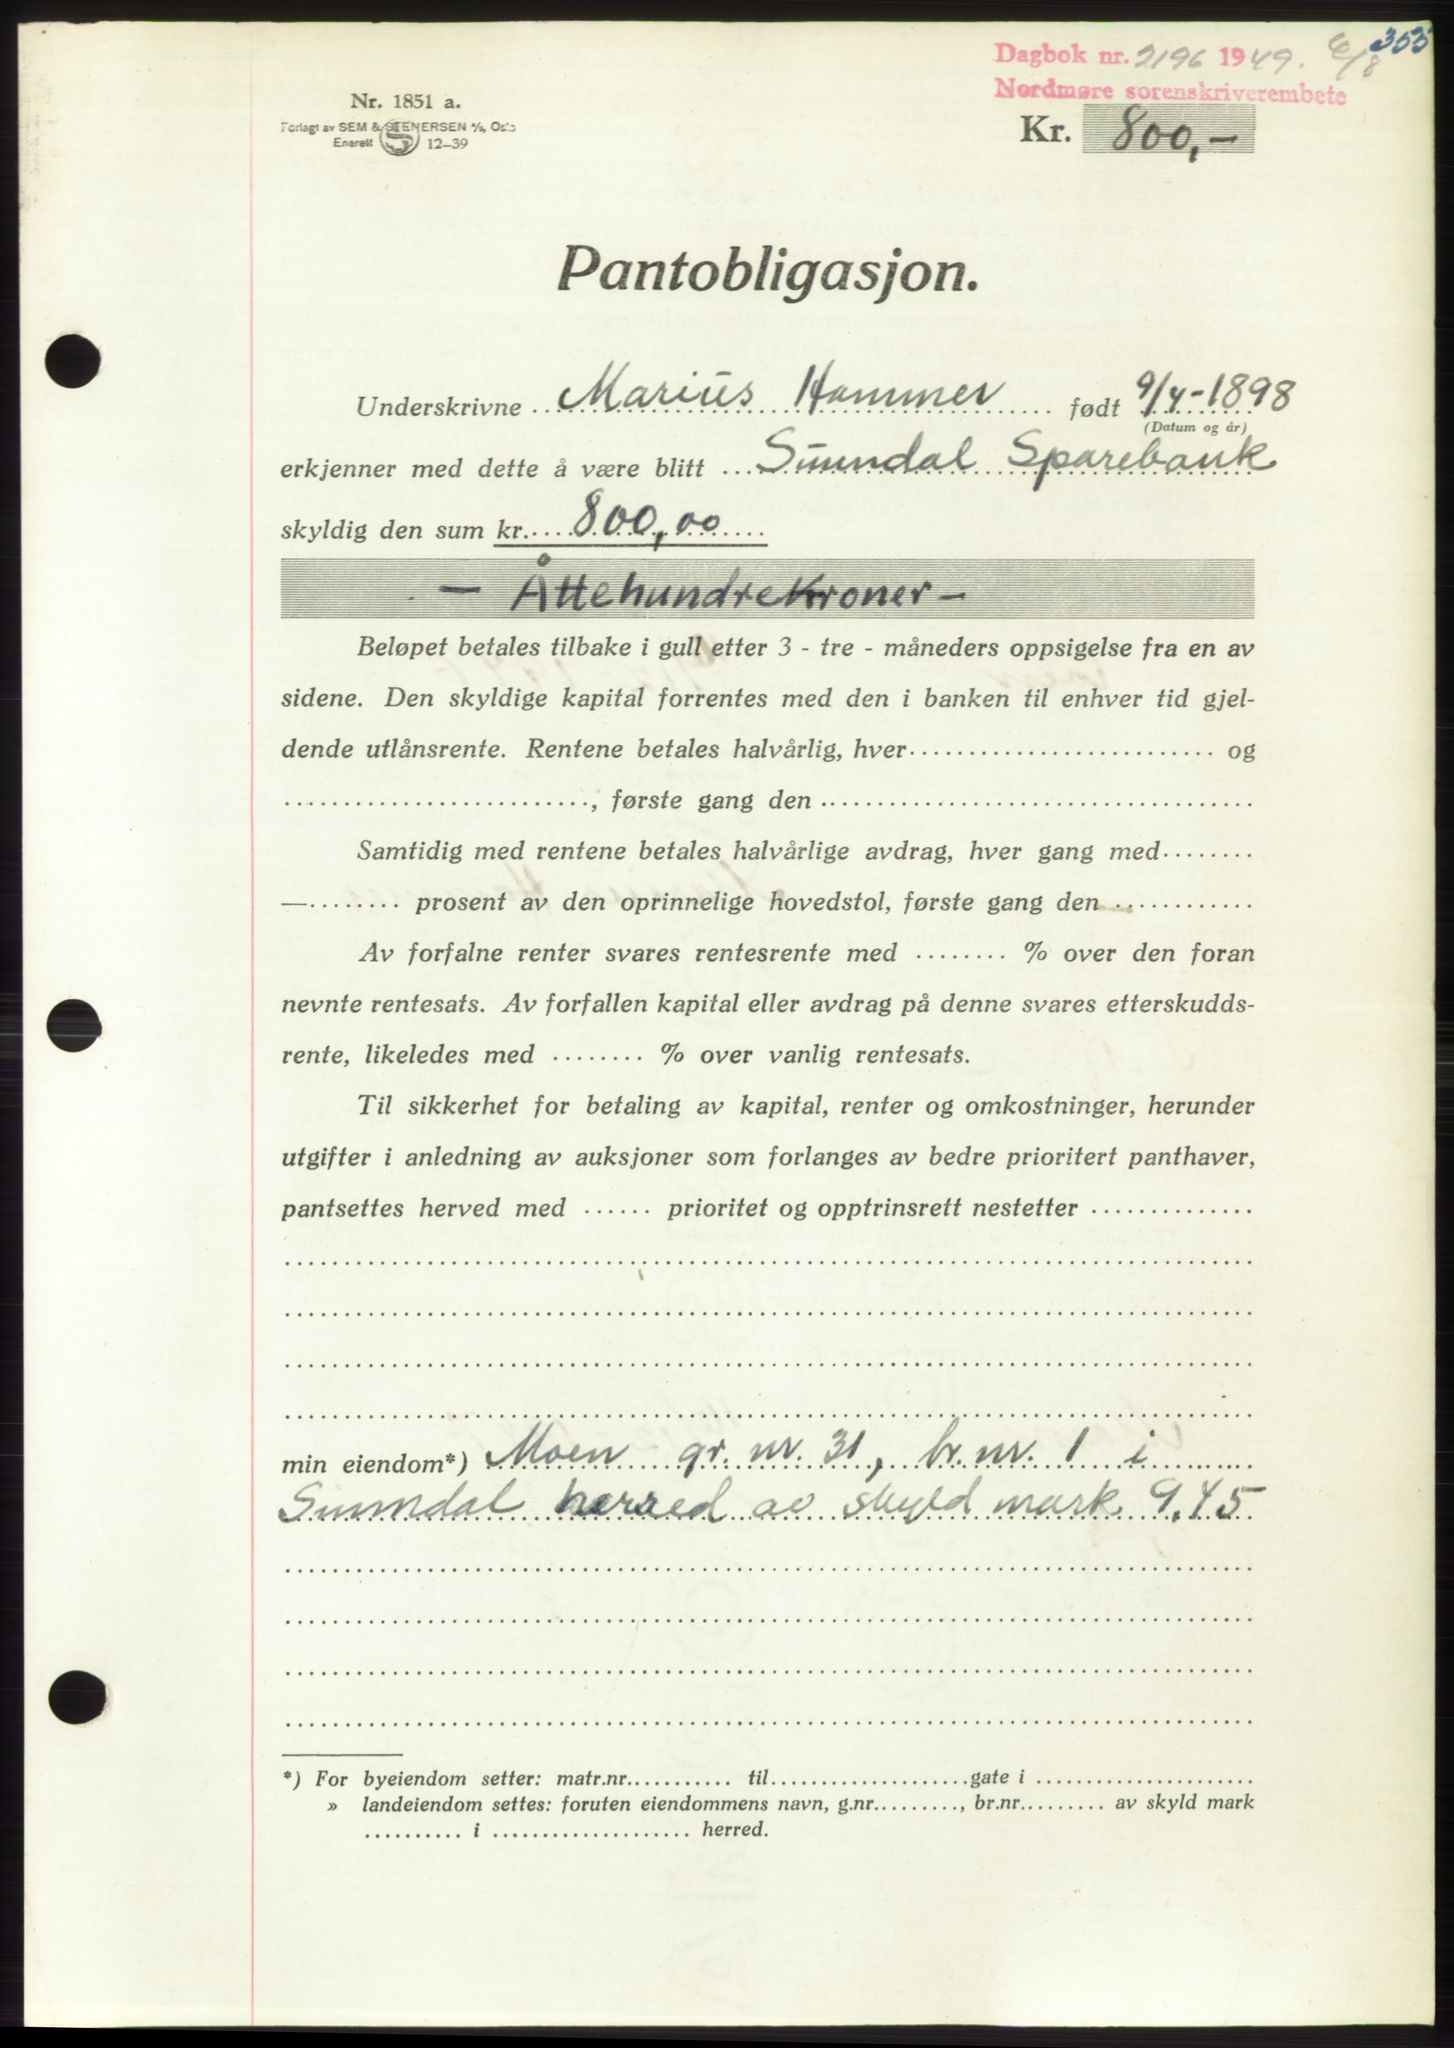 353
Dagbok nr. 2196 1949. 6/8
Nordmøre sorenskriverembete
Nr. 1851 a.
Forlagt av SEM & STENERSEN A/S, Oslo
Enerett 12-39
Kr. 800,-
Pantobligasjon.
Underskrivne Marius Hammer født 9/4-1898
(Datum og år)
erkjenner med dette å være blitt Sunndal Sparebank
skyldig den sum kr. 800,00
- Åttehundrekroner -
Beløpet betales tilbake i gull etter 3 - tre - måneders oppsigelse fra en av
sidene. Den skyldige kapital forrentes med den i banken til enhver tid gjel-
dende utlånsrente. Rentene betales halvårlig, hver .......... og
.........., første gang den ..........
Samtidig med rentene betales halvårlige avdrag, hver gang med ........
— ........ prosent av den oprinnelige hovedstol, første gang den ..........
Av forfalne renter svares rentesrente med ........ % over den foran
nevnte rentesats. Av forfallen kapital eller avdrag på denne svares etterskudds-
rente, likeledes med ........ % over vanlig rentesats.
Til sikkerhet for betaling av kapital, renter og omkostninger, herunder
utgifter i anledning av auksjoner som forlanges av bedre prioritert panthaver,
pantsettes herved med ...... prioritet og opptrinsrett nestetter ..........
min eiendom*) Moen gr. nr. 31, br. nr. 1 i
Sunndal herred av skyld mark 9,45
*) For byeiendom setter: matr.nr.......... til ..........gate i ..........
» landeiendom settes: foruten eiendommens navn, g.nr........., br.nr......... av skyld mark
.......... i .......... herred.